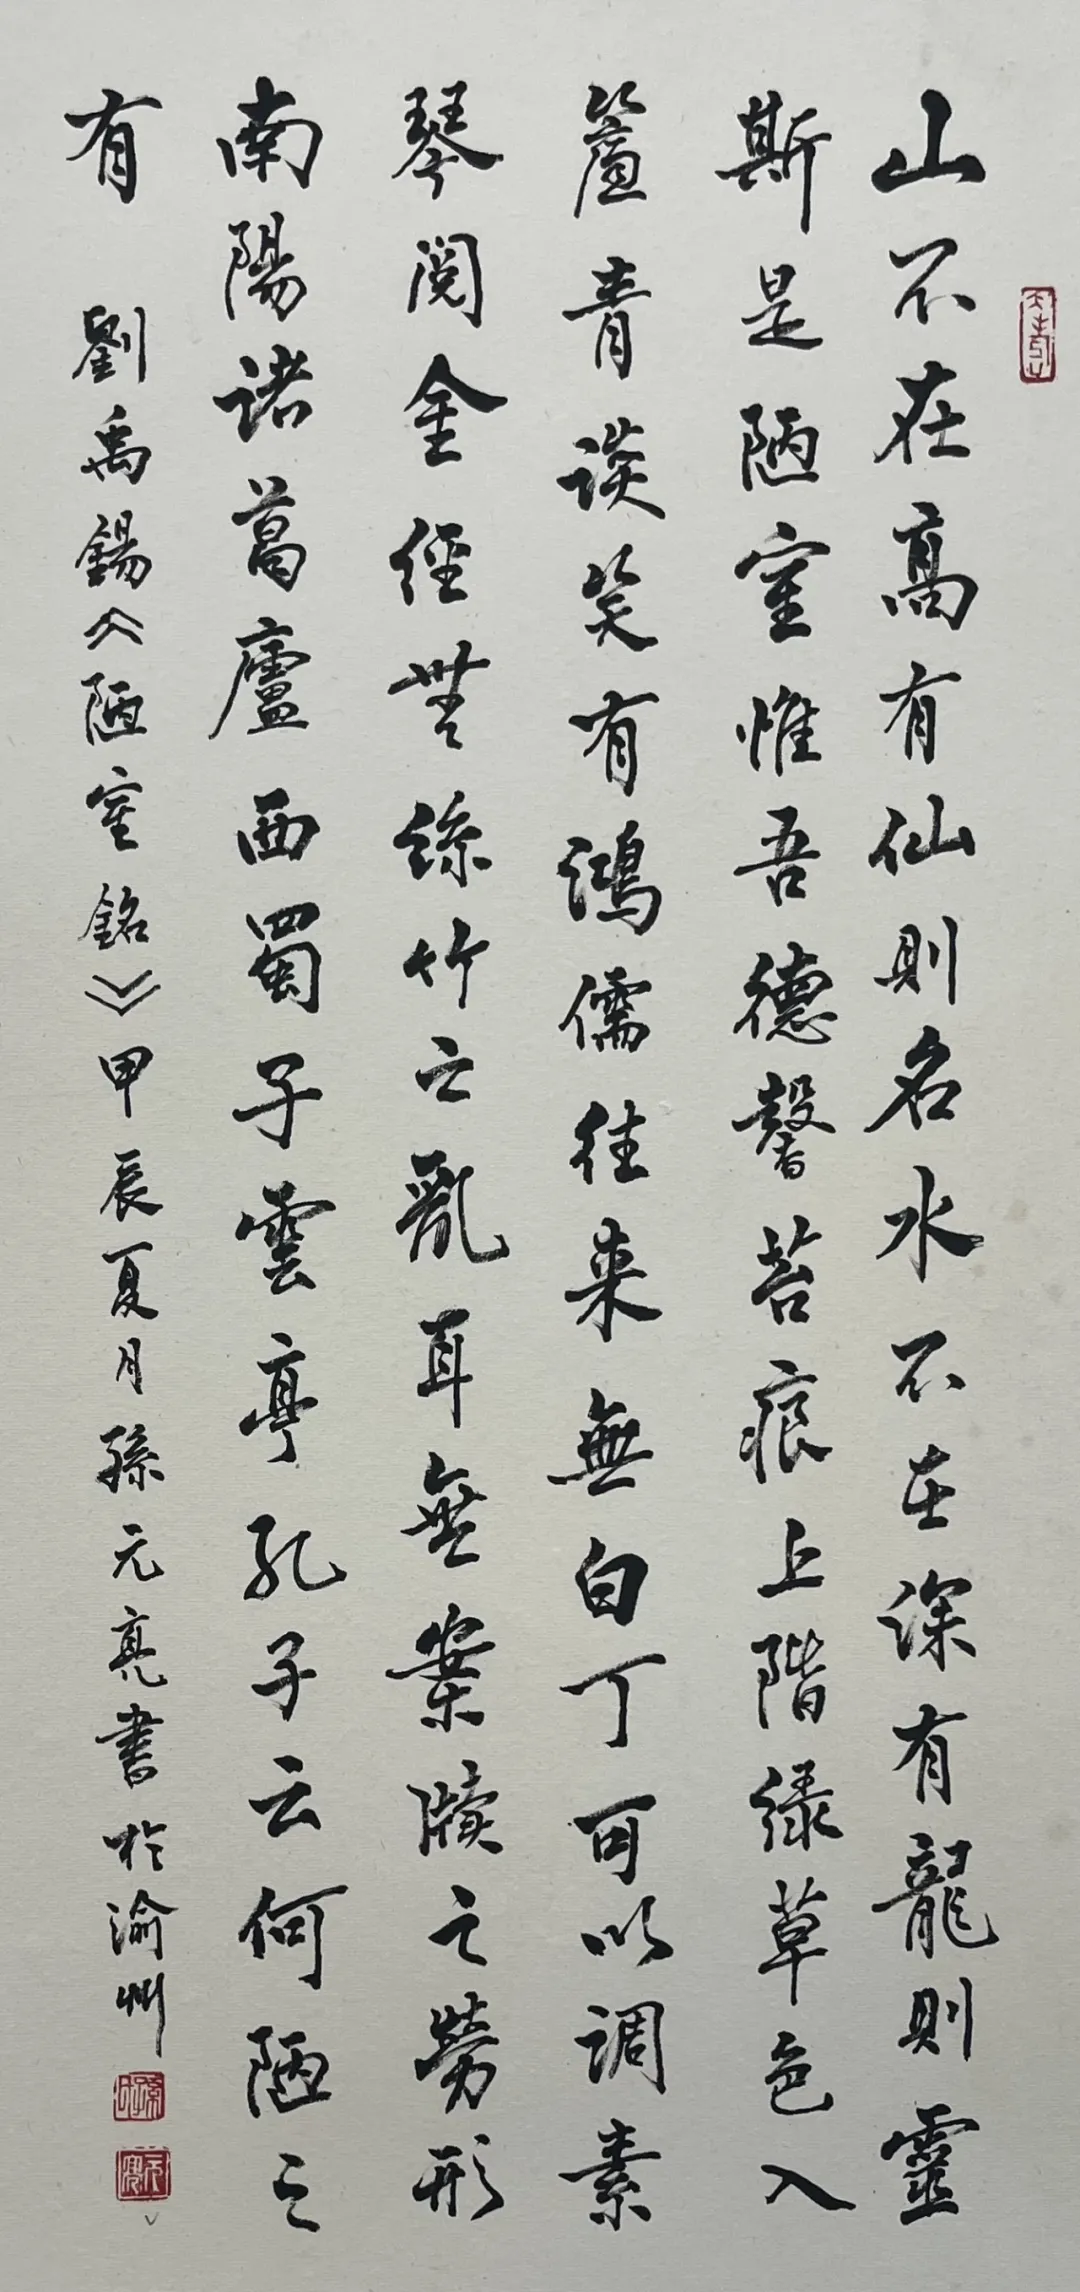 山不在高有仙则名水不在深有龍则靈
斯是陋室惟吾德馨苔痕上階绿草色入
簾青谈笑有鴻儒往来無白丁可以调素
琴阅金經無絲竹之亂耳無案牘之勞形
南陽诸葛廬西蜀子雲亭孔子云何陋之
有 劉禹錫《陋室銘》甲辰夏月孫元亮書於渝州